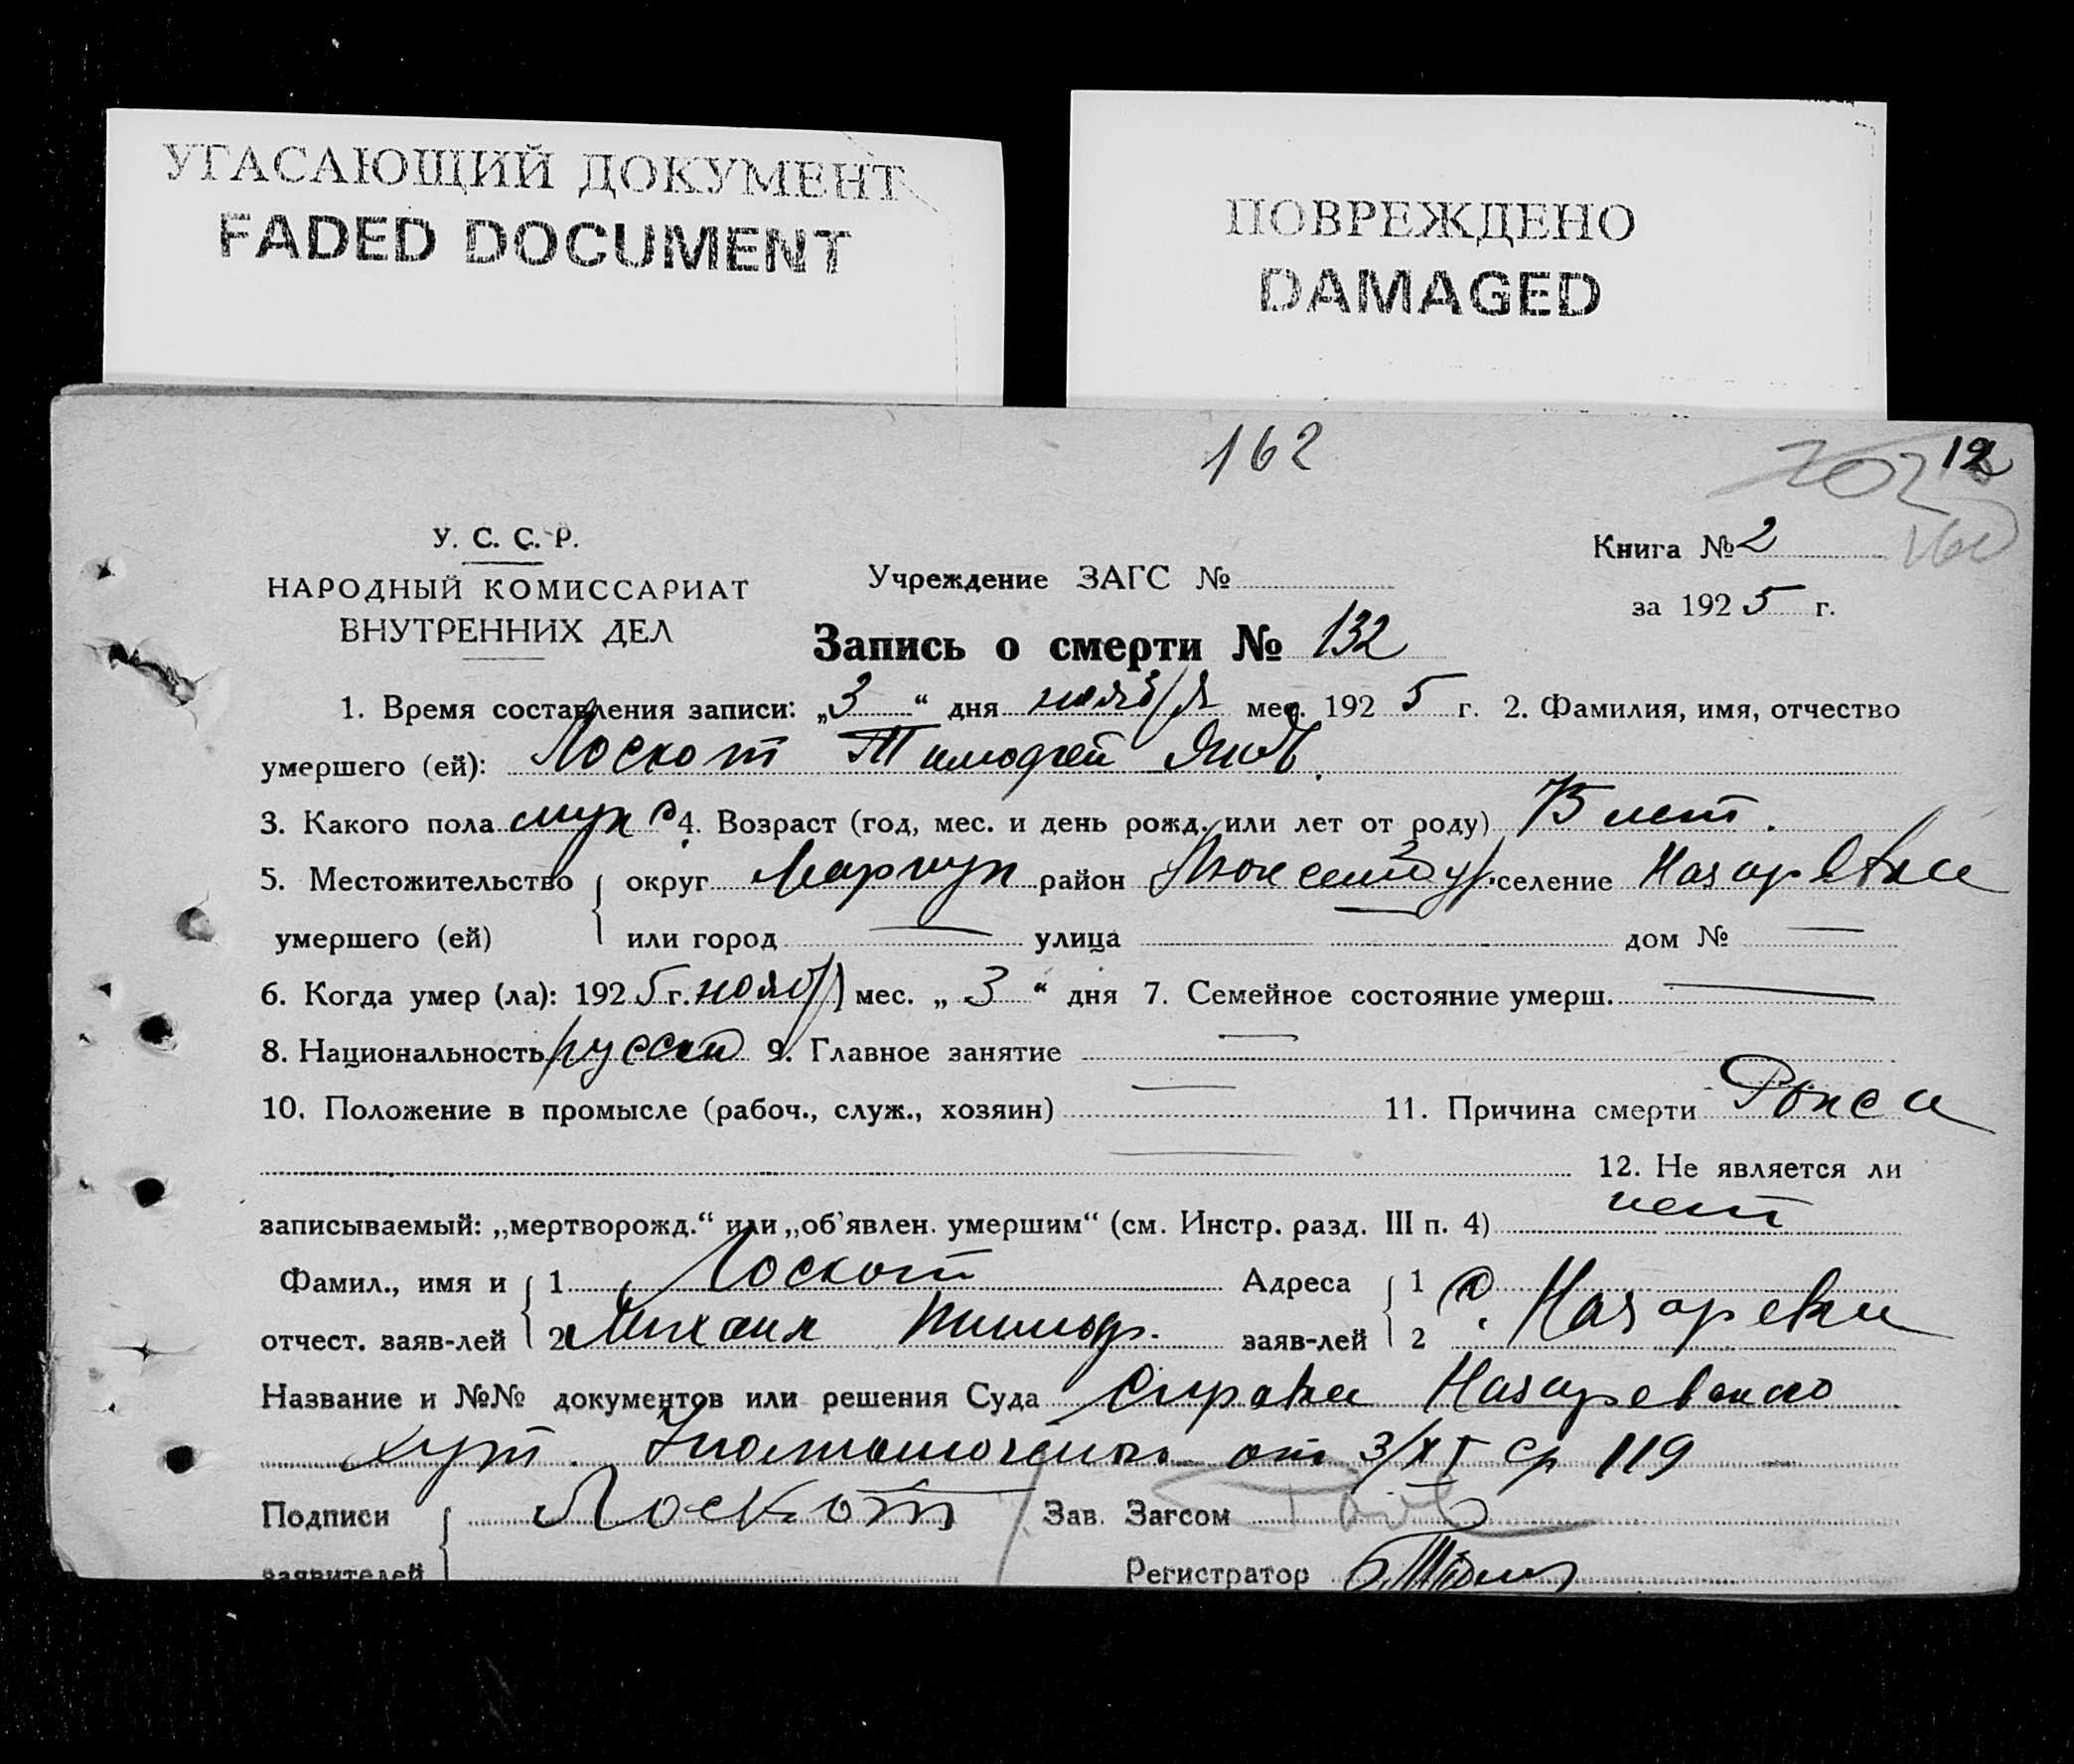 УГАСАЮЩИЙ ДОКУМЕНТ
FADED DOCUMENT
ПОВРЕЖДЕНО
DAMAGED
162
202 12
160
У. С. С. Р.
НАРОДНЫЙ КОМИССАРИАТ
ВНУТРЕННИХ ДЕЛ
Учреждение ЗАГС №
Книга № 2
за 1925 г.
Запись о смерти № 132
1. Время составления записи: „3“ дня ноября мес. 1925 г. 2. Фамилия, имя, отчество
умершего (ей): Лоскот Тимофей Яков.
3. Какого пола муж 4. Возраст (год, мес. и день рожд. или лет от роду) 75 лет.
5. Местожительство округ Мариуп район селение Назаревки
умершего (ей) или город — улица — дом № —
6. Когда умер (ла): 1925 г. ноябр мес. „3“ дня 7. Семейное состояние умерш. —
8. Национальность русский 9. Главное занятие —
10. Положение в промысле (рабоч., служ., хозяин) — 11. Причина смерти
— 12. Не является ли
записываемый: „мертворожд.“ или „об'явлен. умершим“ (см. Инстр. разд. III п. 4) нет
Фамил., имя и 1 Лоскот Адреса 1 с. Назаревки
отчест. заяв-лей 2 Михаил Тимоф. заяв-лей 2
Название и №№ документов или решения Суда Справки Назаревского
хут. от 3/XI ср 119
Подписи Лоскот Зав. Загсом
заявителей Регистратор